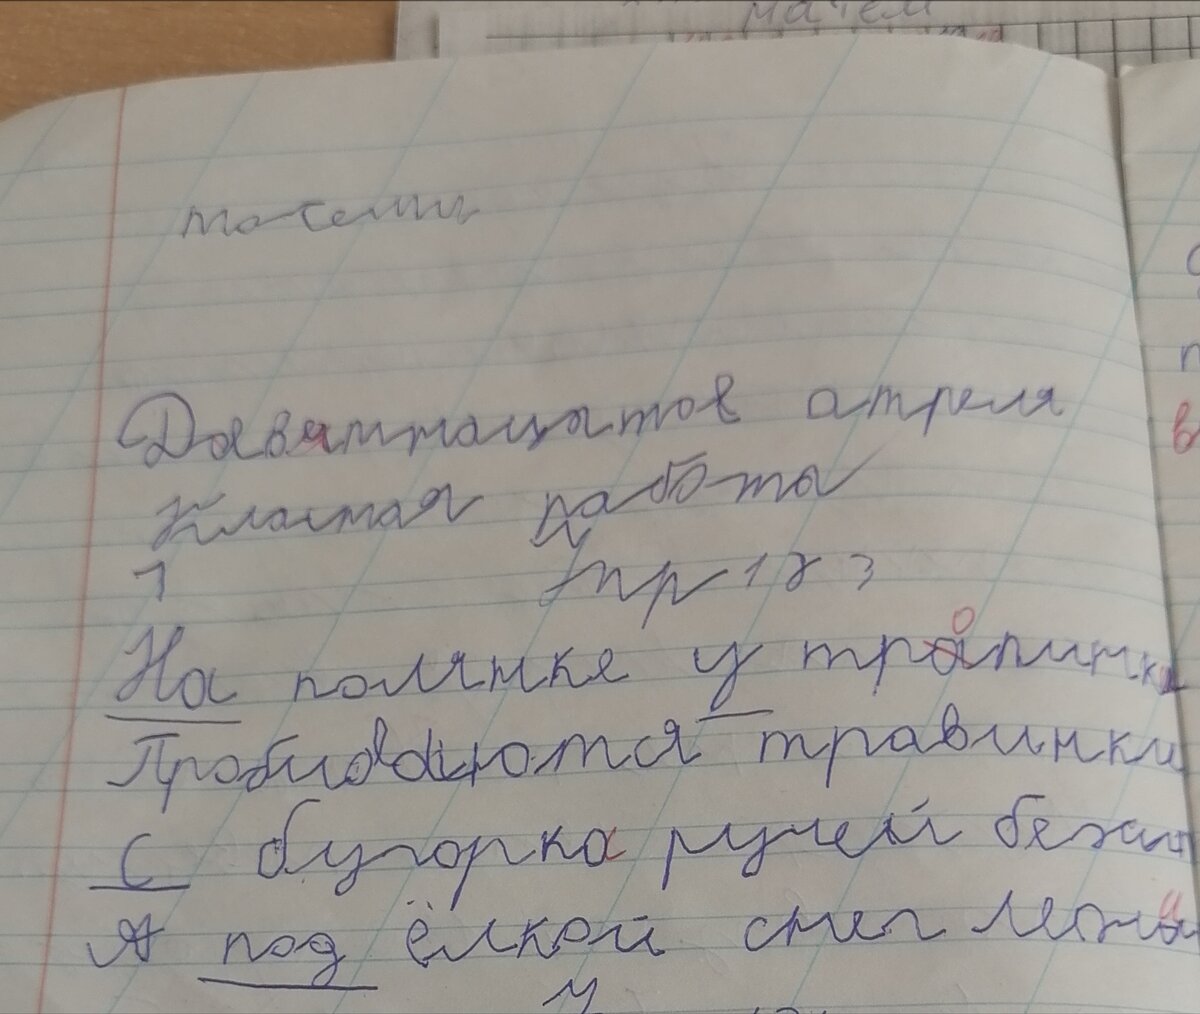 матем
Девятнацытов атреля
Класная работа
1 Упр 123
На полянке у тропинк
Пробиваются травинки
С бугорка ручей бежит
А под ёлкой снег лежи